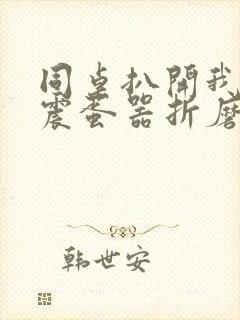 同桌扒開我
震蛋器折磨
韩世安